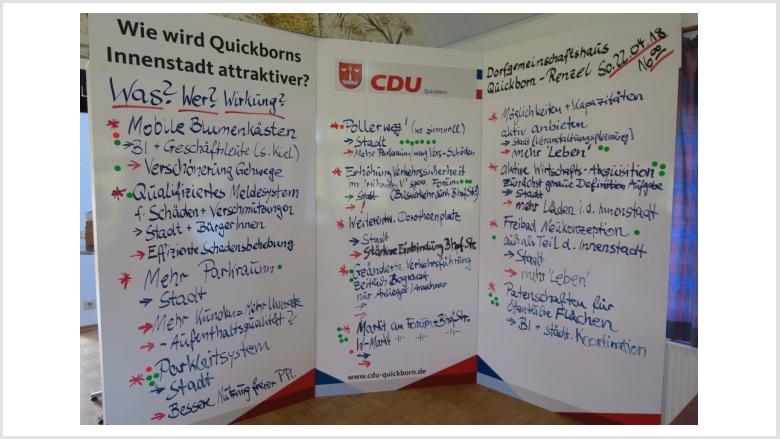 Wie wird Quickborns
Innenstadt attraktiver?
Was? Wer? Wirkung?
Mobile Blumenkästen
→ BI + Geschäftsleute (s. Kiel)
→ Verschönerung Gehwege
Qualifiziertes Meldesystem
f. Schäden + Verschmutzungen
→ Stadt + Bürgerinnen
→ Effiziente Schadensbehebung
Mehr Parkraum
→ Stadt
→ Mehr Kunden
→ - Aufenthaltsqualität?
Parkleitsystem
→ Stadt
→ Bessere Nutzung freier PPl.
CDU
Quickborn
Poller weg! (wo sinnvoll)
→ Stadt
→ Mehr Parkraum
Erhöhung Verkehrssicherheit
Forum
→ Stadt
→ !
Dorotheenplatz
→ Stadt
→ Stärkere Einbindung Bhof. Str.
Geänderte Verkehrsführung
Zeitlich Begrenzt
nur Anlieger/Anwohner
→
→
Markt am Forum + Bhof Str.
W-Markt -"- -"-
→
→
www.cdu-quickborn.de
Dorfgemeinschaftshaus
Quickborn - Renzel So. 22.04.18
16 00
Möglichkeiten + Kapazitäten
aktiv anbieten
→ Stadt (Veranstaltungsplanung)
→ mehr 'Leben'
aktive Wirtschafts-Akquisition
zunächst genaue Definition Aufgabe
→ Stadt
→ mehr Läden i.d. Innenstadt
Freibad Neukonzeption
auch als Teil d. Innenstadt
→ Stadt
→ mehr 'Leben'
Patenschaften für
öffentliche Flächen
→ BI + städt. Koordination